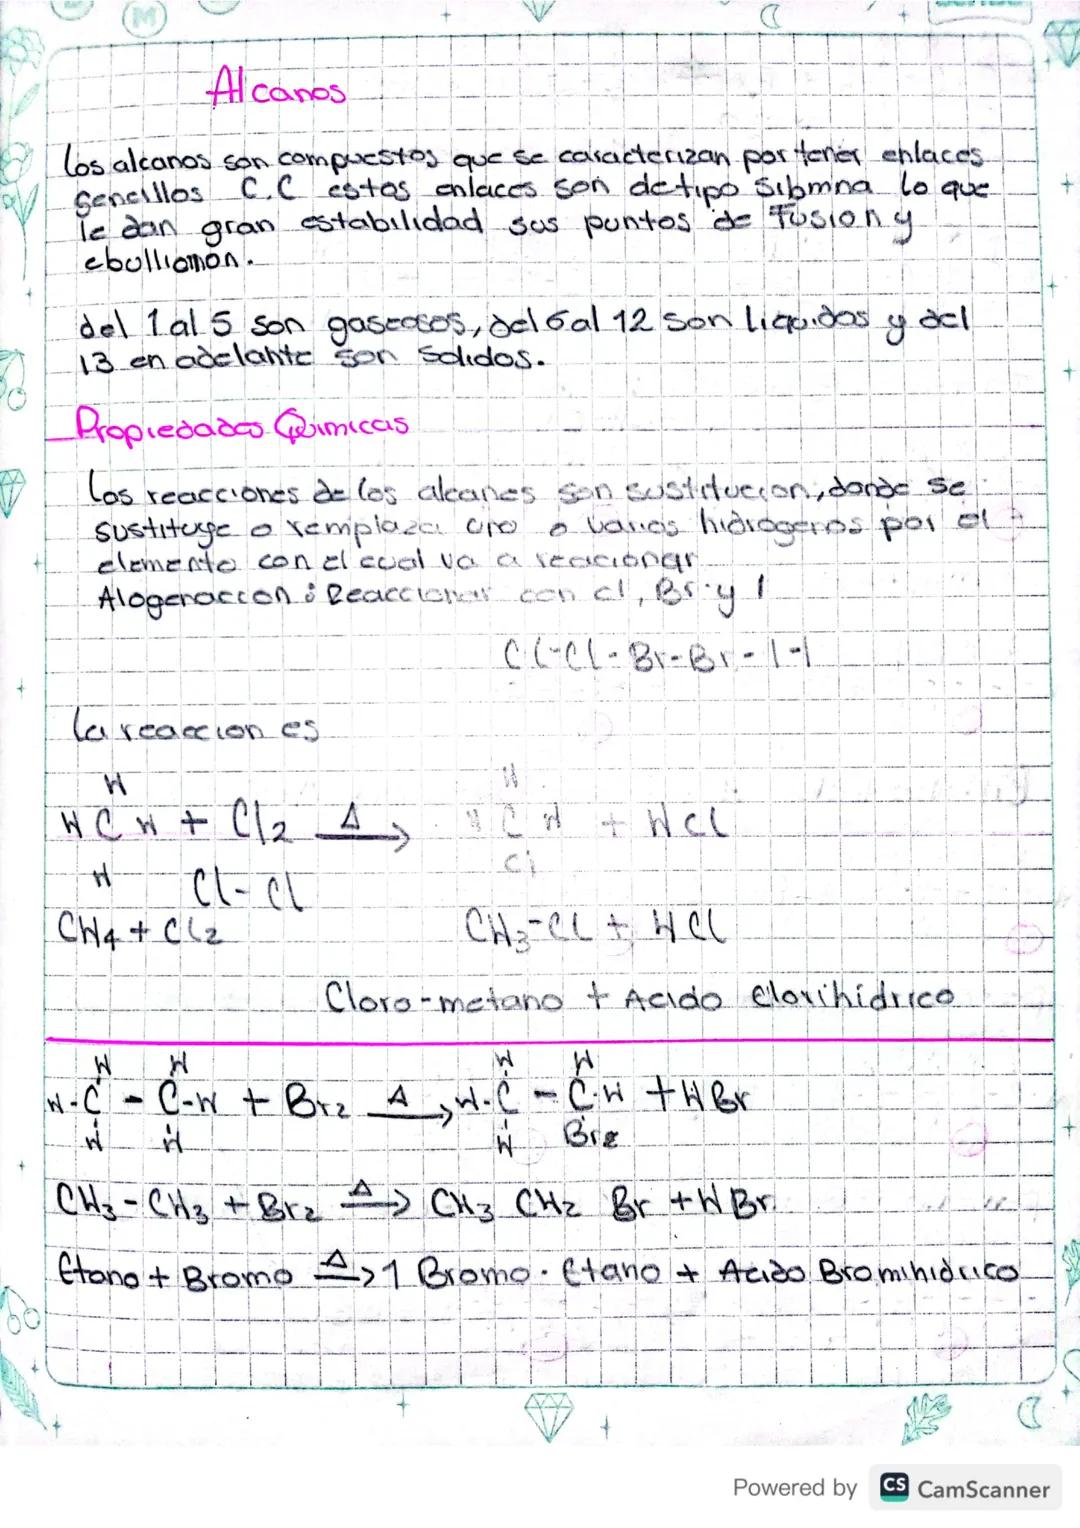 Alcanos
los alcanos son compuestos que se caracterizan por tener enlaces
sencillos C.C estos enlaces son de tipo sibmna lo que
le dan gran estabilidad sus puntos de fusion y
ebulliomon.
del 1 al 5 son gaseosos, del 6 al 12 son liquidos y del
13 en adelante son solidos.
Propiedades Quimicas
Las reacciones de los alcanes son sustitucion, donde se
sustituye o remplaza uno o varios hidrogenos por el
elemento con el cual va a reacionar
Alogenaccon : Reaccionar con cl, Br y I
Cl-Cl - Br-Br - I-I
La reaccion es
H H
H C H + Cl2 Δ→ H C H + HCl
H Cl-Cl Cl
CH4 + Cl2 CH3-Cl + HCl
Cloro-metano + Acido Clorihidrico
H H H H
H-C - C-H + Br2 Δ→ H-C - C-H + HBr
H H H Br2
CH3-CH3 + Br2 Δ→ CH3 CH2 Br + HBr.
Etano + Bromo Δ→ 1 Bromo. Etano + Acido Bromihidrico
Powered by CS CamScanner